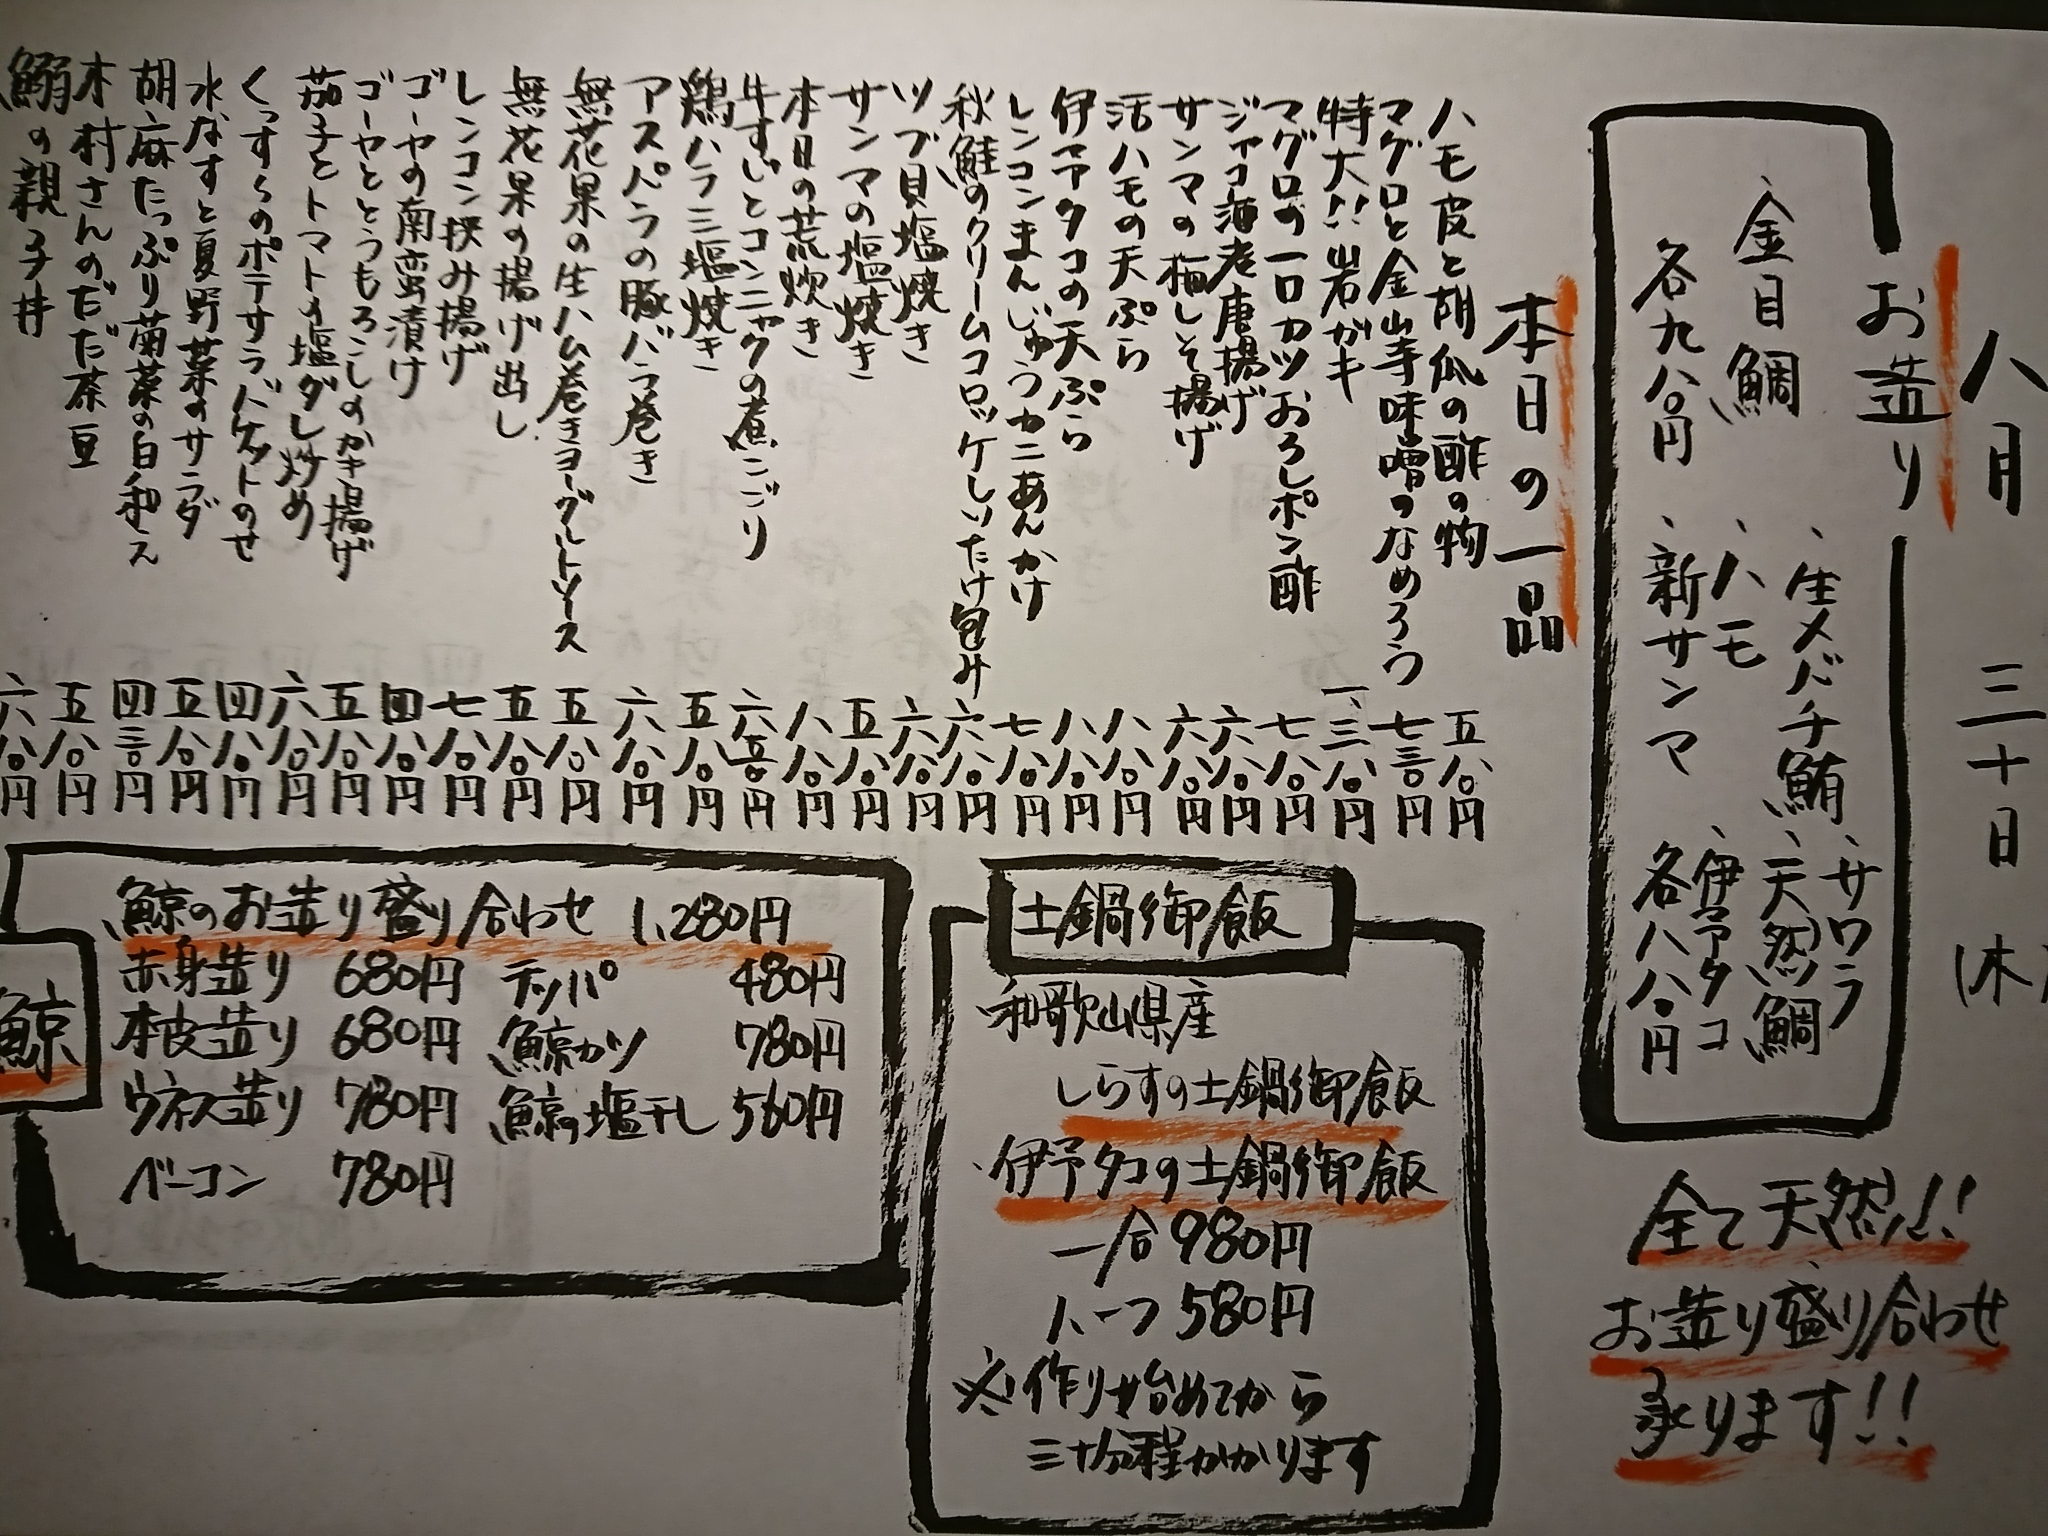 八月三十日(木)
お造り
、生メバチ鮪、サワラ
、金目鯛、ハモ、天然鯛
各九八〇円、新サンマ、伊予タコ
各八八〇円
全て天然!!
お造り盛り合わせ
承ります!!
本日の一品
ハモ皮と胡瓜の酢の物 五八〇円
マグロと金山寺味噌のなめろう 七三〇円
特大!!岩ガキ 一、三八〇円
マグロの一口カツおろしポン酢 七八〇円
ジャコ海老唐揚げ 六八〇円
サンマの梅しそ揚げ 六八〇円
活ハモの天ぷら 八八〇円
伊予タコの天ぷら 八八〇円
レンコンまんじゅうカニあんかけ 七八〇円
秋鮭のクリームコロッケしいたけ包み 六八〇円
ツブ貝塩焼き 六八〇円
サンマの塩焼き 五八〇円
本日の荒炊き 八八〇円
牛すじとコンニャクの煮こごり 六五〇円
鶏ハラミ塩焼き 五八〇円
アスパラの豚バラ巻き 六八〇円
無花果の生ハム巻きヨーグルトソース 五八〇円
無花果の揚げ出し 五八〇円
レンコン挟み揚げ 七八〇円
ゴーヤの南蛮漬け 四八〇円
ゴーヤととうもろこしのかき揚げ 五八〇円
茄子とトマトの塩ダレ炒め 六八〇円
くっすらのポテサラバケットのせ 四八〇円
水なすと夏野菜のサラダ 五八〇円
胡麻たっぷり菊菜の白和え 四三〇円
木村さんのだだ茶豆 五八〇円
鰯の親子丼 六八〇円
土鍋御飯
和歌山県産
しらすの土鍋御飯
、伊予タコの土鍋御飯
一合 980円
ハーフ 580円
※作り始めてから
三十分程かかります
鯨
鯨のお造り盛り合わせ 1,280円
赤身造り 680円 テッパ 480円
本皮造り 680円 鯨カツ 780円
ウネス造り 780円 鯨の塩干し 560円
ベーコン 780円